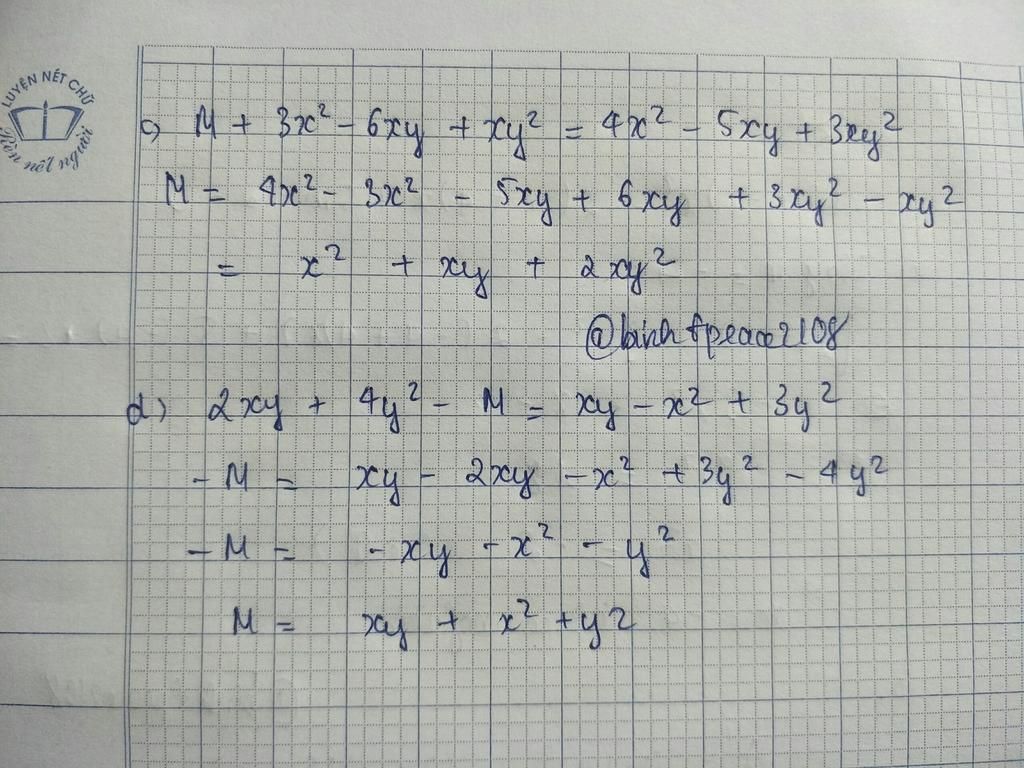 LUYỆN NÉT CHỮ
Rèn nết người
c) M + 3x² - 6xy + xy² = 4x² - 5xy + 3xy²
M = 4x² - 3x² - 5xy + 6xy + 3xy² - xy²
= x² + xy + 2xy²
d) 2xy + 4y² - M = xy - x² + 3y²
-M = xy - 2xy - x² + 3y² - 4y²
-M = -xy - x² - y²
M = xy + x² + y²